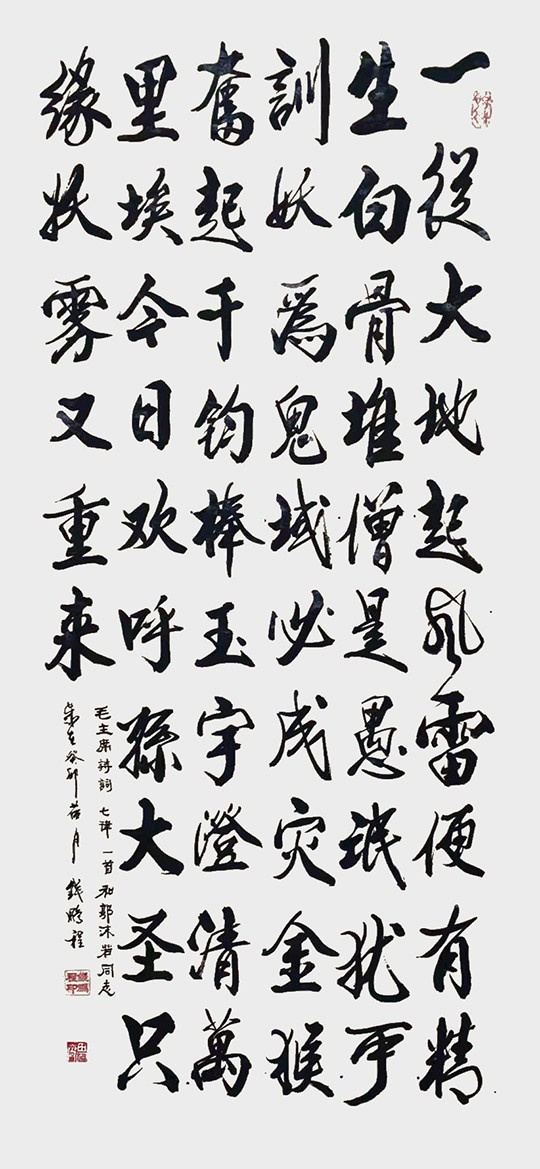 一從大地起風雷便有精
生白骨堆僧是愚氓犹可
訓妖爲鬼域必成灾金猴
奮起千鈞棒玉宇澄清萬
里埃今日欢呼孫大圣只
緣妖雾又重来
毛主席詩詞 七律一首 和郭沫若同志
歲在癸卯 月 錢鵬程